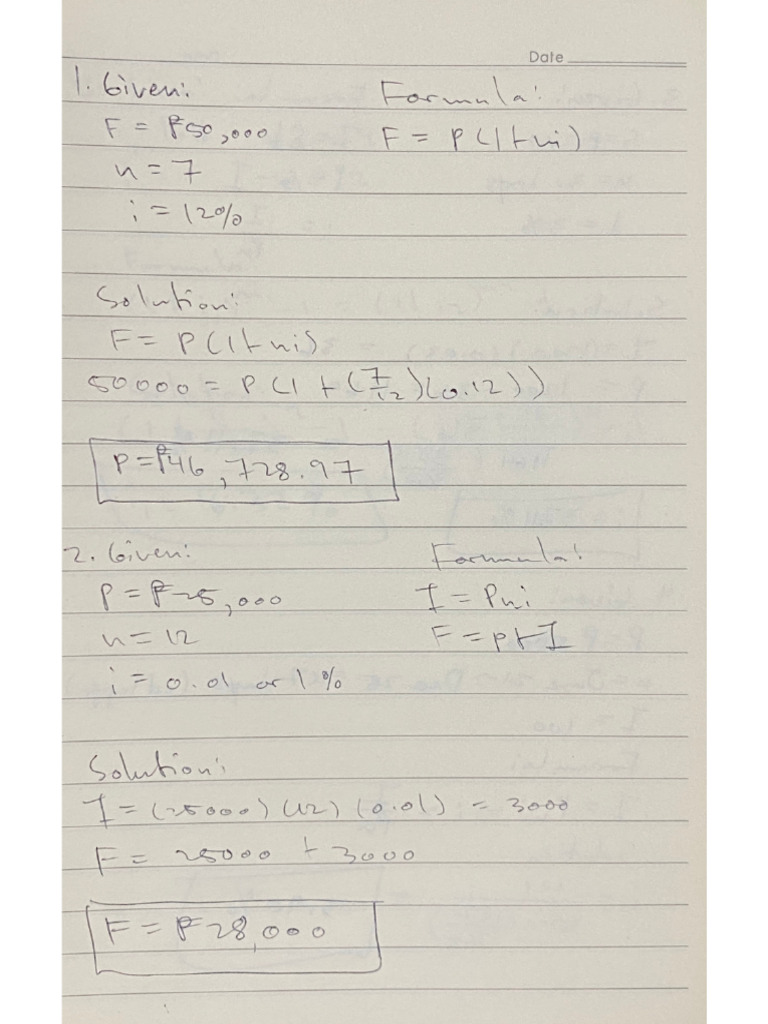 Date
1. Given: Formula:
F = ₱50,000 F = P(1+ni)
n = 7
i = 12%
Solution:
F = P(1+ni)
50000 = P(1 + (7/12)(0.12))
P = ₱46,728.97
2. Given: Formula:
P = ₱25,000 I = Pni
n = 12 F = P+I
i = 0.01 or 1%
Solution:
I = (25000)(12)(0.01) = 3000
F = 25000 + 3000
F = ₱28,000